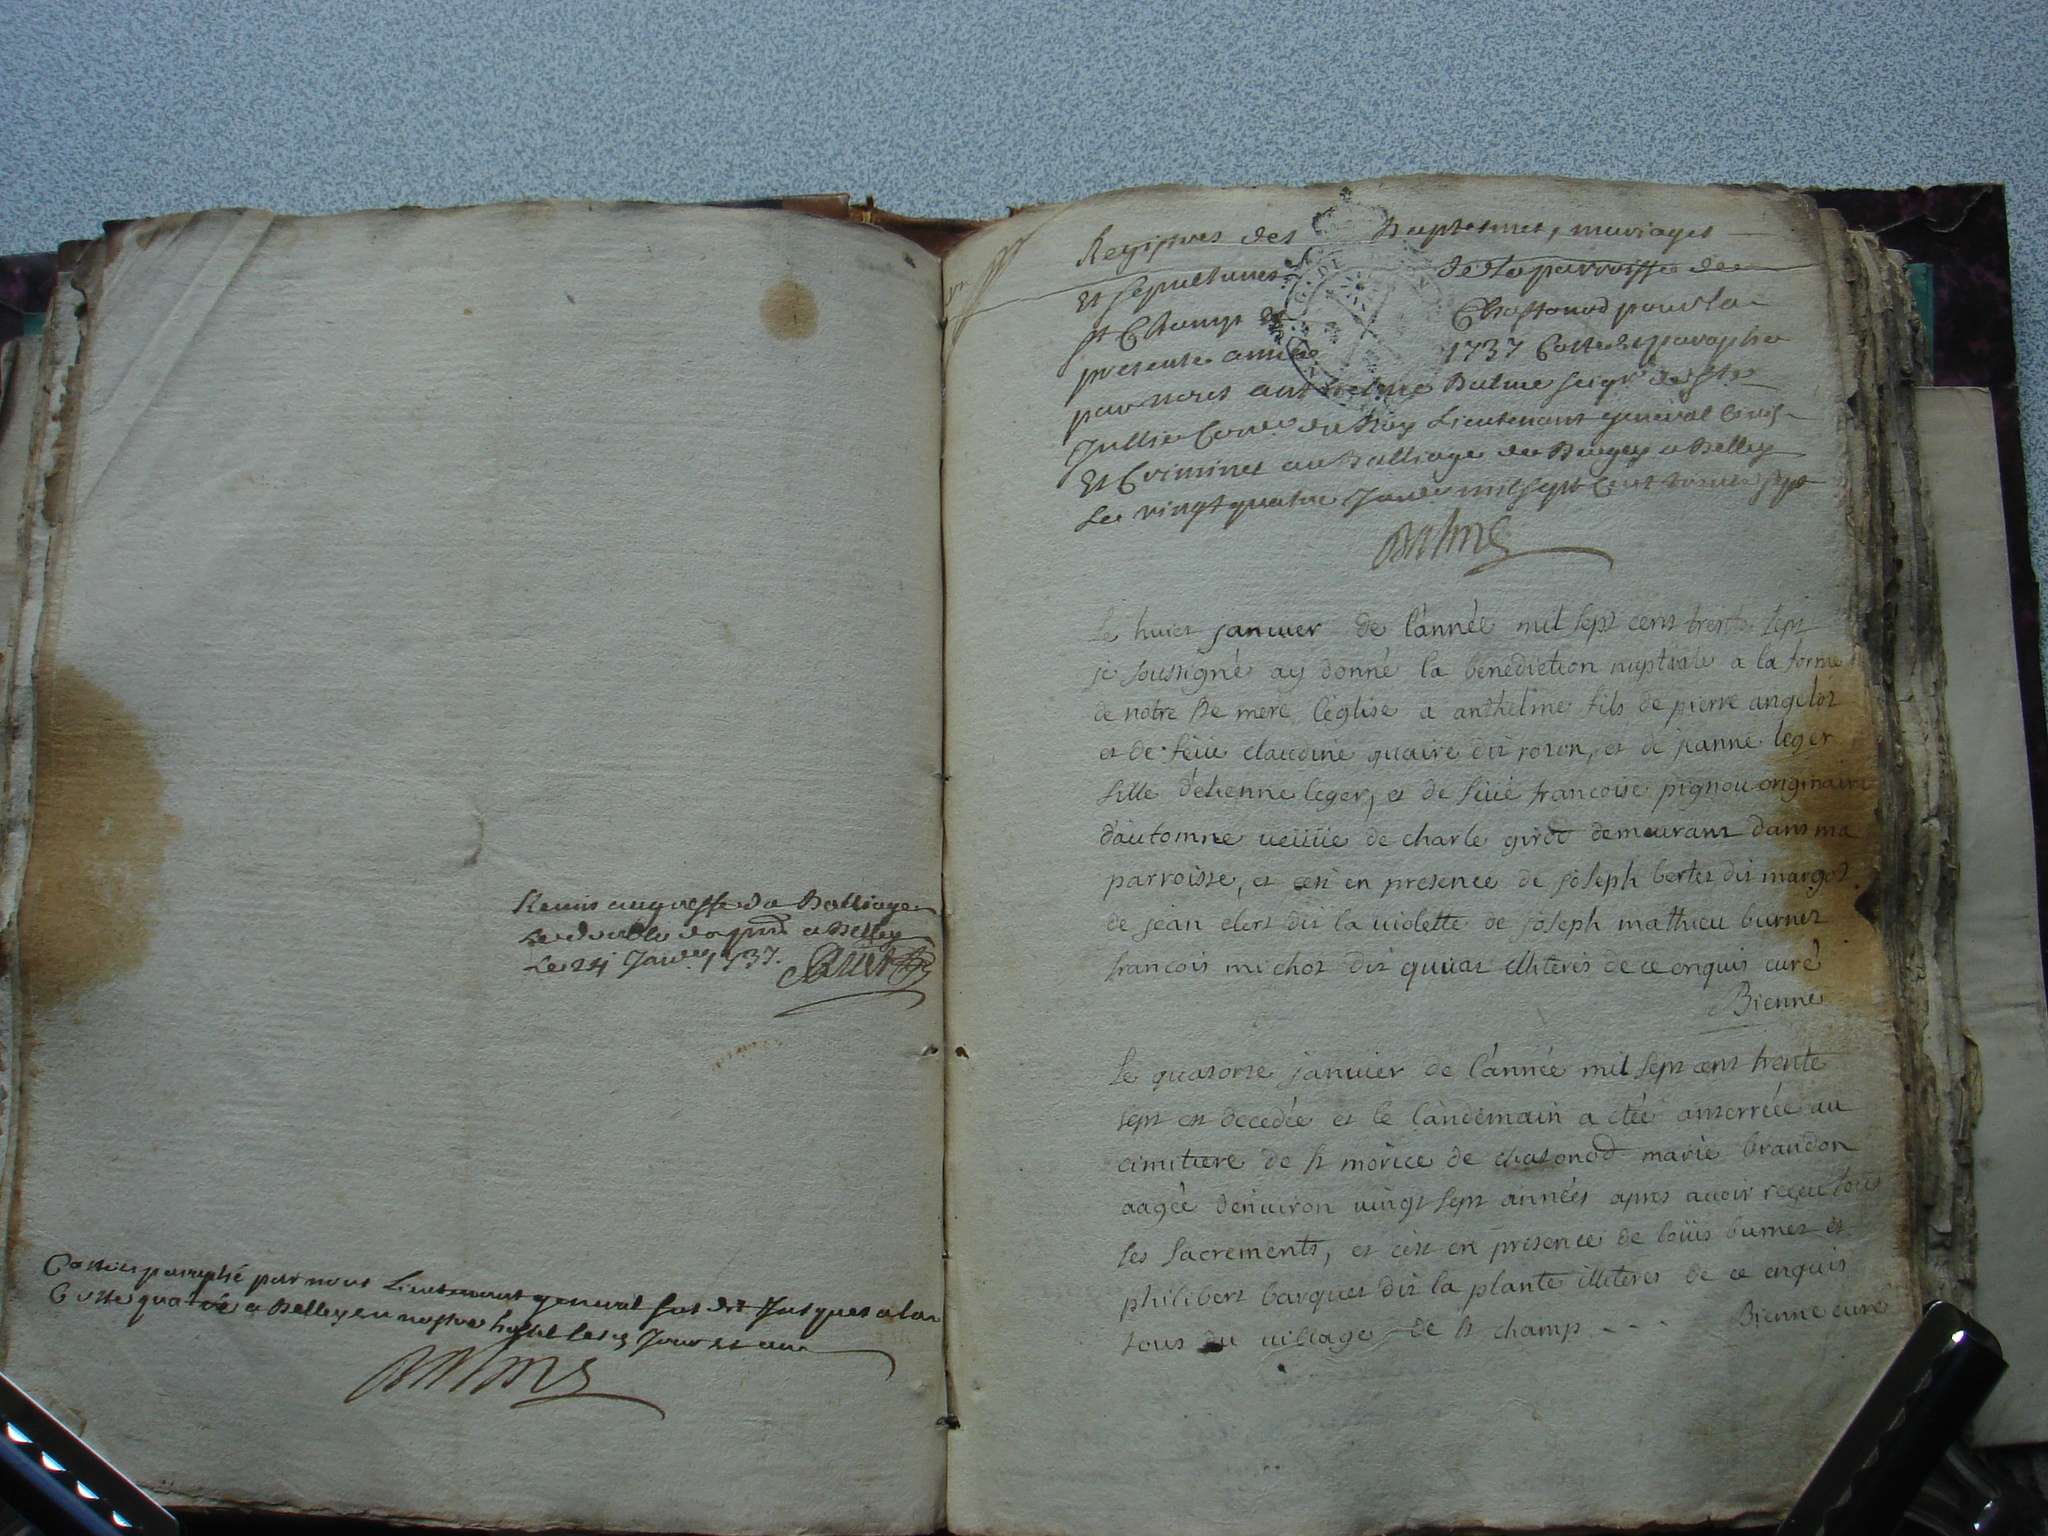 Remis au greffe du Balliage
Le double du pnt a Belley
Le 24 Janv. 1737.
Cotté et paraphé par nous Lieutenant general sus dit Jusques a la
Cotte quatre a Belley en nostre hostel lesd Jour et an
Balme
Registres des Baptesmes, mariages
Et sepultures de La parroisse de
St Champ et Chastonod pour la
presente année 1737 Cotté et paraphé
par nous anthelme Balme seigr de Ste
Jullie Conr du Roy Lieutenant general Civil
Et Criminel au Balliage de Bugey a Belley
Le vingt quatre Janv. mil sept Cent trente sept
Balme
le huict janvier de l'année mil sept cent trente sept
je soussigné ay donné la benediction nuptiale a la forme
de notre Ste mere l'eglise a anthelme fils de pierre angelot
et de feüe claudine quaire dit roson, et de jeanne leger
fille d'etienne leger, et de feüe francoise pignou originaire
d'automne veüüe de charle girod demeurant dans ma
parroisse, et cest en presence de joseph bertet dit margot
de jean clert dit la violette de joseph mathieu burnet
francois michot dit quiat illiteris de ce enquis curé
Bienne
le quatorze janvier de l'année mil sept cent trente
sept est decedée et le landemain a etée anterrée au
cimitiere de st morice de chatonod marie brandon
aagée d'enuiron vingt sept années apres auoir reçeu tous
ses sacrements, et cest en presence de loüis burnet et
philibert barquet dit la plante illiteres de ce enquis
tous du village de st champ - - - Bienne curé